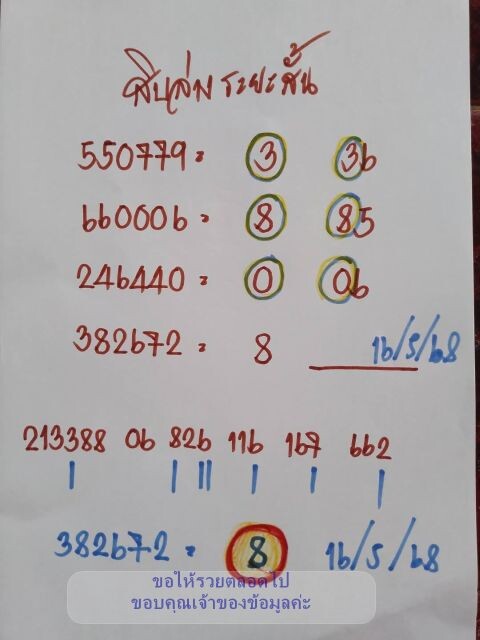 สิบล่ม ระยะสั้น
550779 = 3 36
660006 = 8 85
246440 = 0 06
382672 = 8 16/5/68
213388 06 826 116 167 662
382672 = 8 16/5/68
ขอให้รวยตลอดไป
ขอบคุณเจ้าของข้อมูลค่ะ